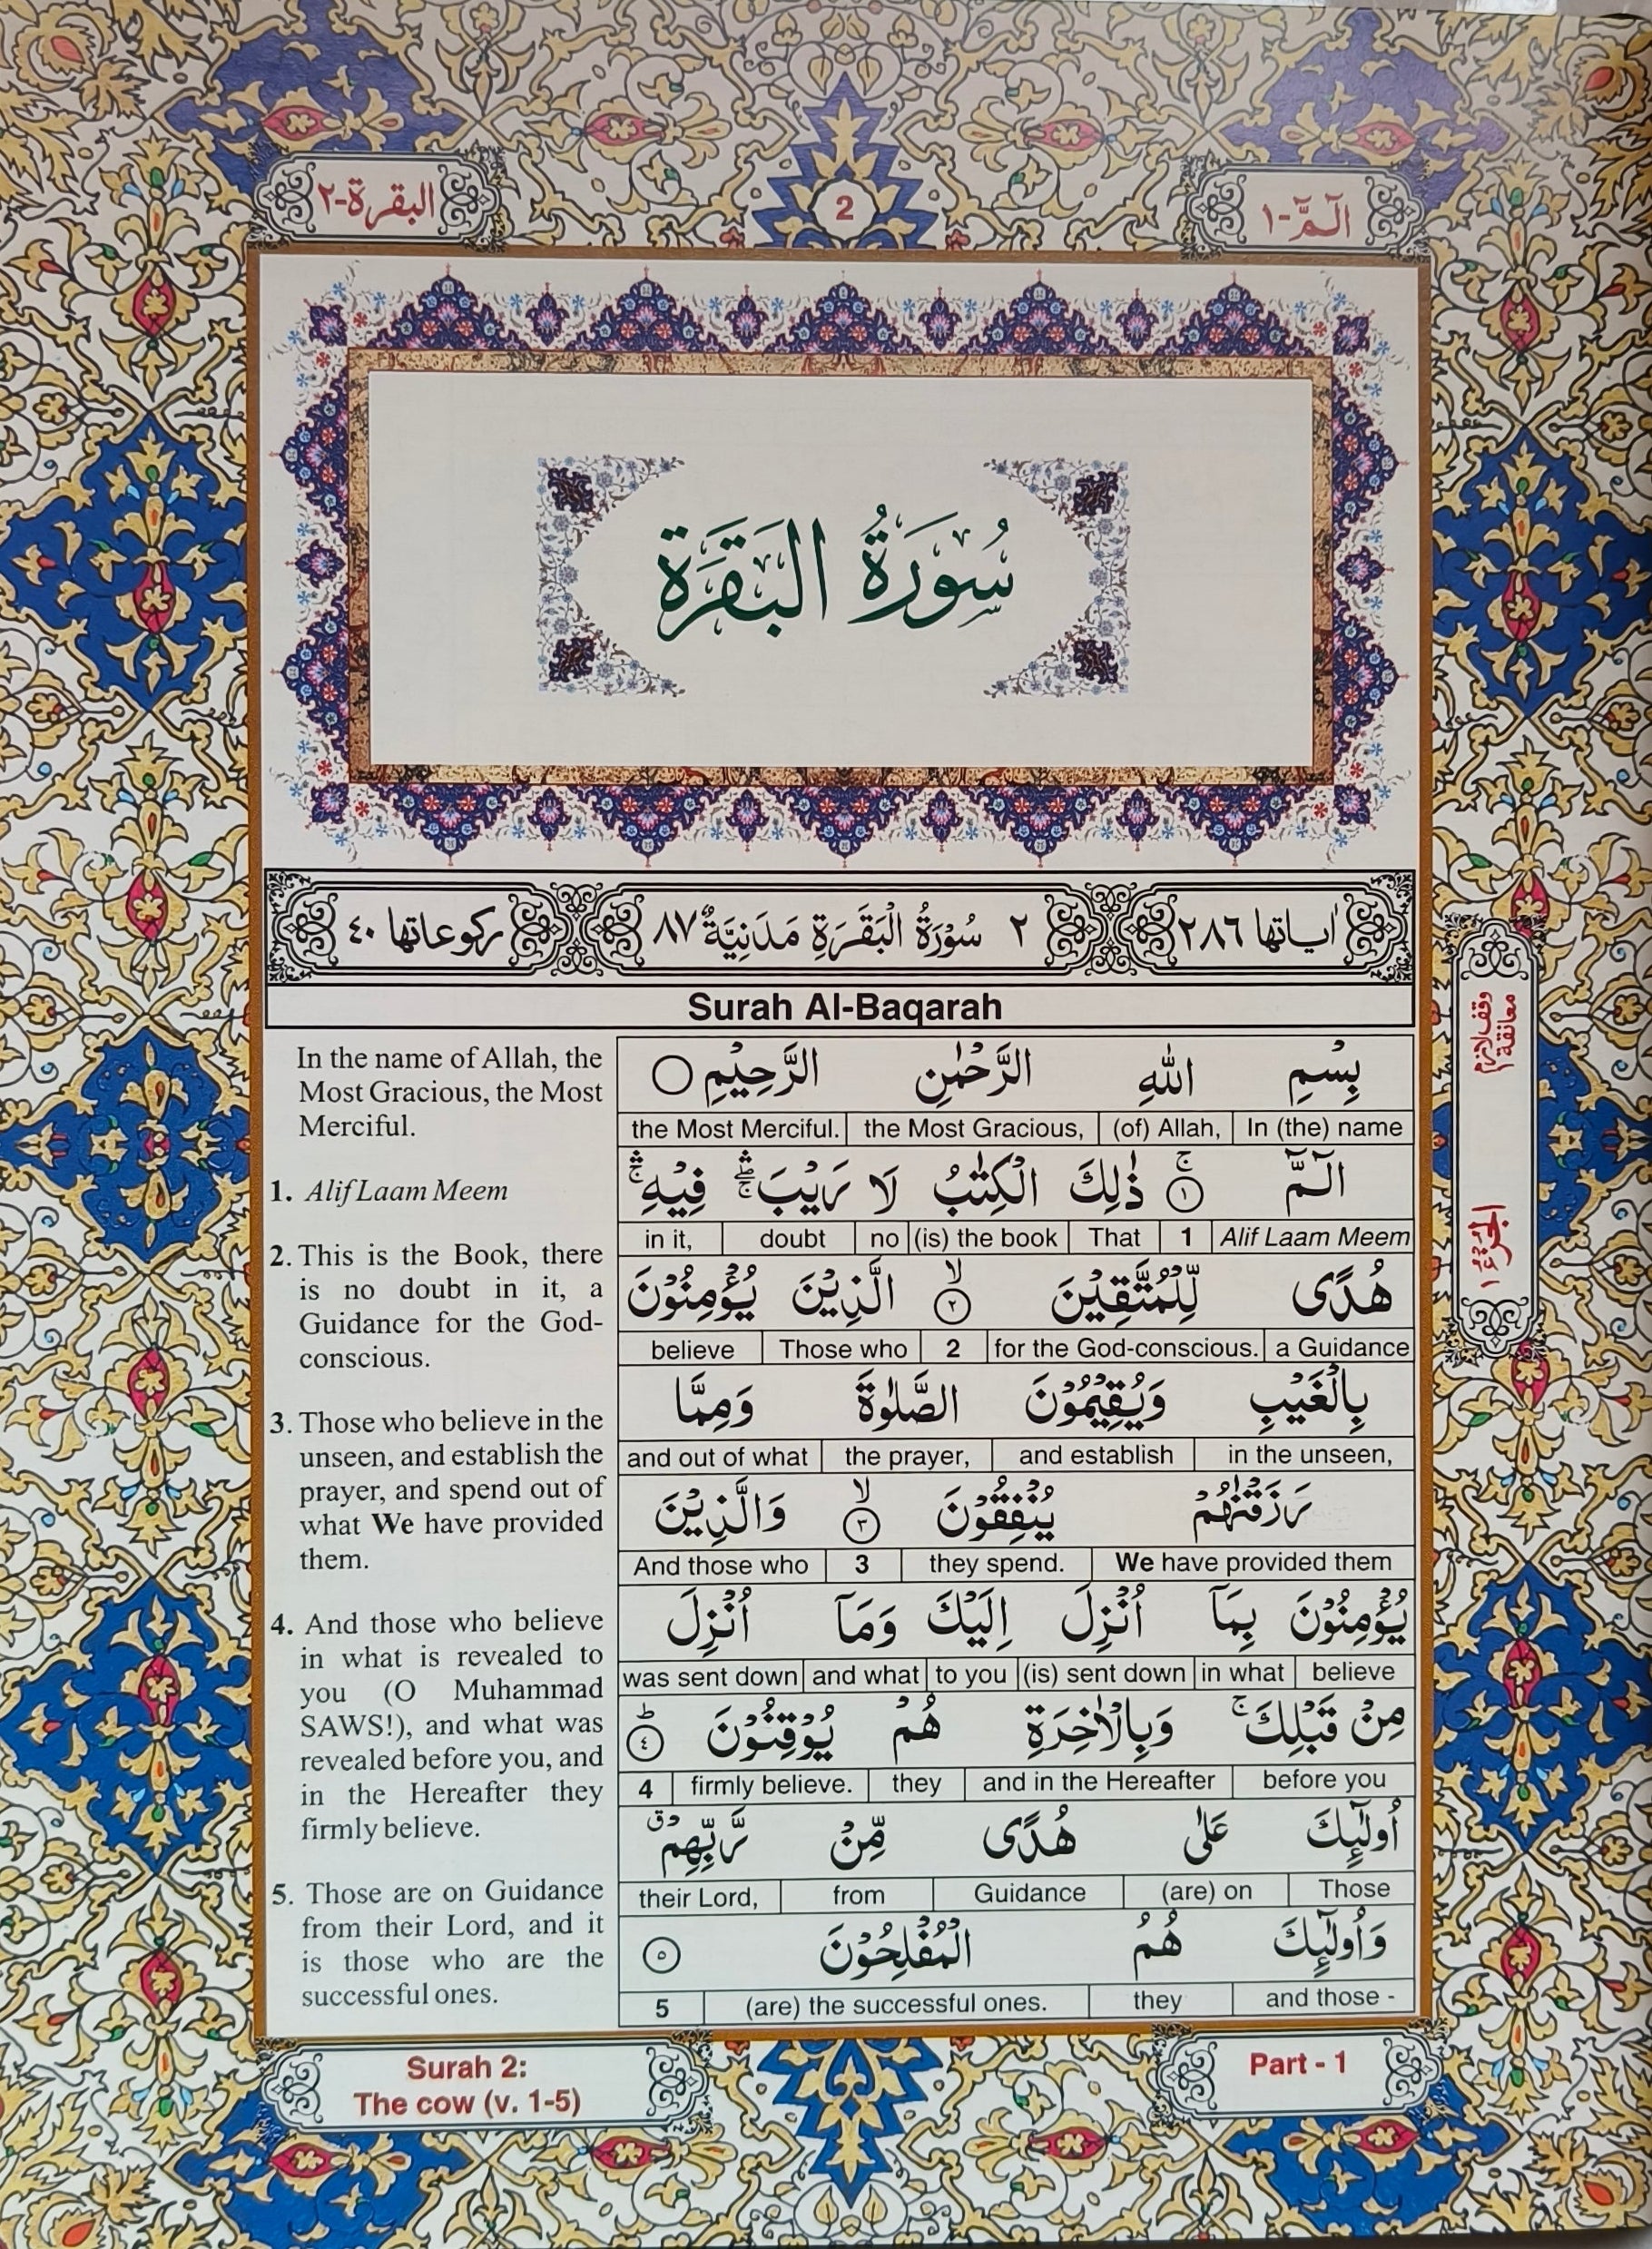 البقرة-٢
2
الٓمّٓ-١
سُورَةُ البَقَرَة
اٰیاتها ٢٨٦
٢ سُوْرَةُ الْبَقَرَةِ مَدَنِيَّةٌ ٨٧
رکوعاتها ٤٠
Surah Al-Baqarah
In the name of Allah, the
Most Gracious, the Most
Merciful.
1. Alif Laam Meem
2. This is the Book, there
is no doubt in it, a
Guidance for the God-
conscious.
3. Those who believe in the
unseen, and establish the
prayer, and spend out of
what We have provided
them.
4. And those who believe
in what is revealed to
you (O Muhammad
SAWS!), and what was
revealed before you, and
in the Hereafter they
firmly believe.
5. Those are on Guidance
from their Lord, and it
is those who are the
successful ones.
بِسْمِ اللّٰهِ الرَّحْمٰنِ الرَّحِيْمِ ○
the Most Merciful. the Most Gracious, (of) Allah, In (the) name
الٓمّٓ ۚ ١ ذٰلِكَ الْكِتٰبُ لَا رَيْبَ ۛۖۚ فِيْهِ ۛۚ
in it, doubt no (is) the book That 1 Alif Laam Meem
هُدًى لِّلْمُتَّقِيْنَ ۙ ٢ الَّذِيْنَ يُؤْمِنُوْنَ
believe Those who 2 for the God-conscious. a Guidance
بِالْغَيْبِ وَيُقِيْمُوْنَ الصَّلٰوةَ وَمِمَّا
and out of what the prayer, and establish in the unseen,
رَزَقْنٰهُمْ يُنْفِقُوْنَ ۙ ٣ وَالَّذِيْنَ
And those who 3 they spend. We have provided them
يُؤْمِنُوْنَ بِمَآ اُنْزِلَ اِلَيْكَ وَمَآ اُنْزِلَ
was sent down and what to you (is) sent down in what believe
مِنْ قَبْلِكَ ۚ وَبِالْاٰخِرَةِ هُمْ يُوْقِنُوْنَ ؕ ٤
4 firmly believe. they and in the Hereafter before you
اُولٰٓئِكَ عَلٰى هُدًى مِّنْ رَّبِّهِمْ ۗ
their Lord, from Guidance (are) on Those
وَاُولٰٓئِكَ هُمُ الْمُفْلِحُوْنَ ٥
5 (are) the successful ones. they and those -
وقف لازم
معانقة ١
الجزء ١
Surah 2:
The cow (v. 1-5)
Part - 1